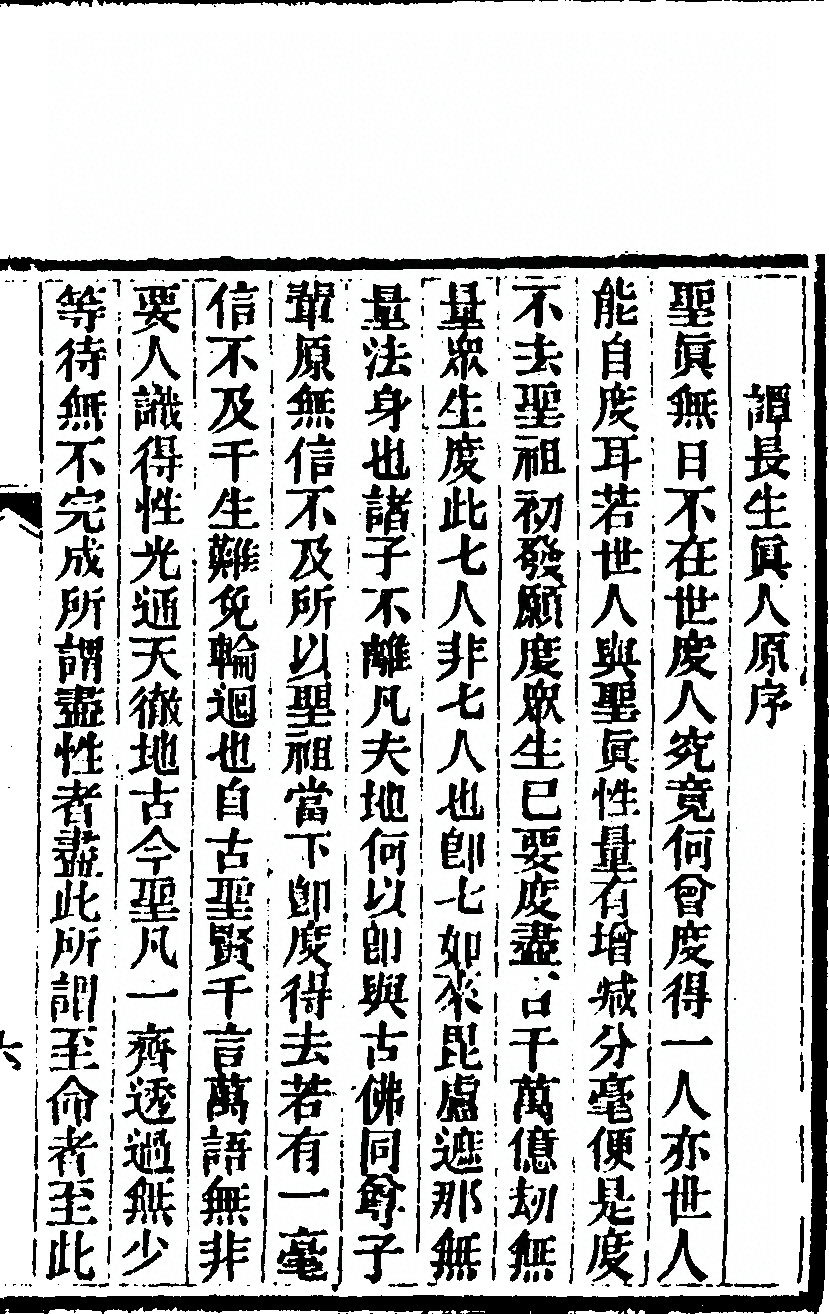 譚長生眞人原序
聖眞無日不在世度人究竟何曾度得一人亦世人
能自度耳若世人與聖眞性量有增減分毫便是度
不去聖祖初發願度衆生已要度盡千萬億劫無
量衆生度此七人非七人也卽七如來毘盧遮那無
量法身也諸子不離凡夫地何以卽與古佛同尊子
輩原無信不及所以聖祖當下卽度得去若有一毫
信不及千生難免輪迴也自古聖賢千言萬語無非
要人識得性光通天徹地古今聖凡一齊透過無少
等待無不完成所謂盡性者盡此所謂至命者至此
六